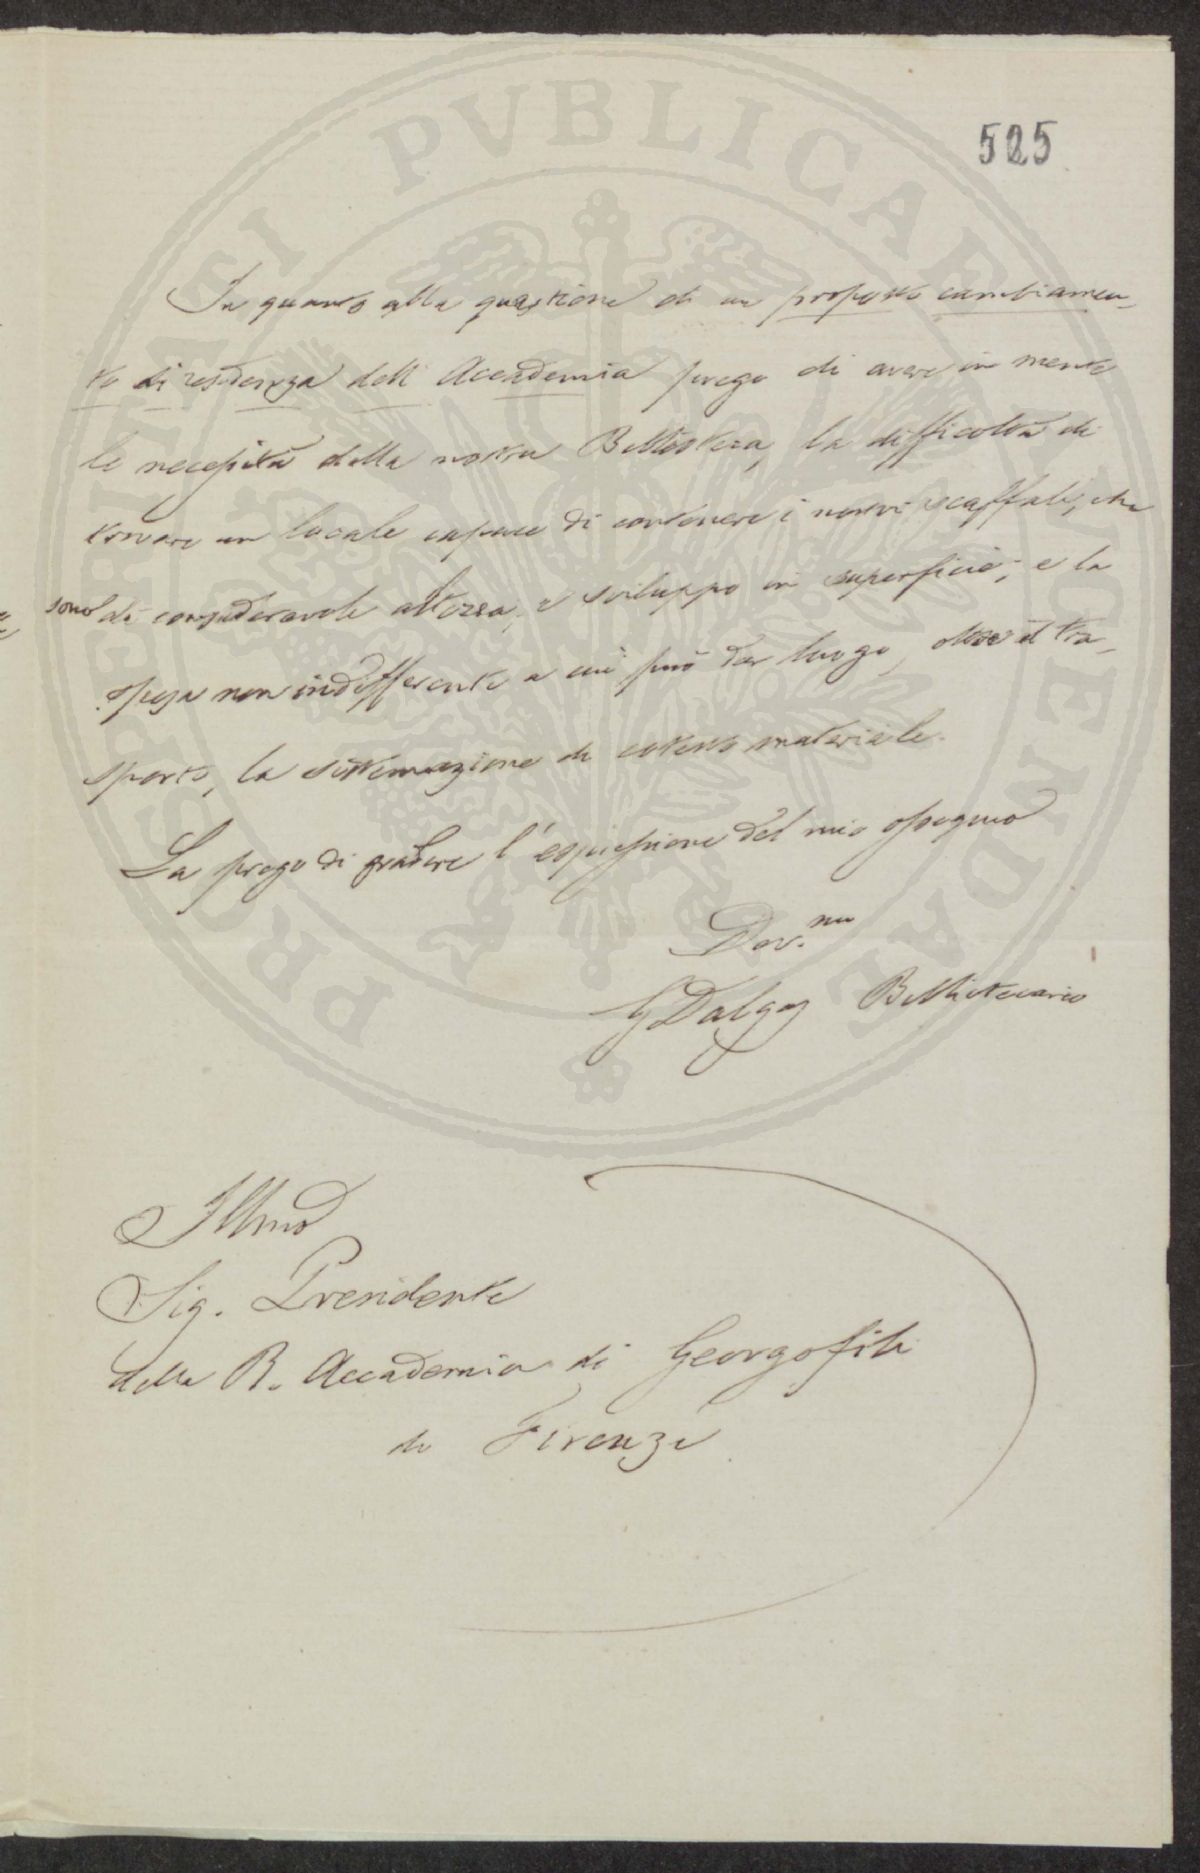 PROSPERITATI PVBLICAE AVGENDAE
525
In quanto alla questione di un proposto cambiamen-
to di residenza dell' Accademia prego di avere in mente
le necessità della nostra Biblioteca, la difficoltà di
trovare un locale capace di contenere i nostri scaffali, che
sono di considerevole altezza, e sviluppo in superficie; e la
spesa non indifferente a cui può dar luogo, oltre il tra-
sporto, la sistemazione di cotesto materiale.
La prego di gradire l'espressione del mio ossequio
Dev.mo
G Dalgas Bibliotecario
Illmo
Sig. Presidente
della R. Accademia di Georgofili
di Firenze